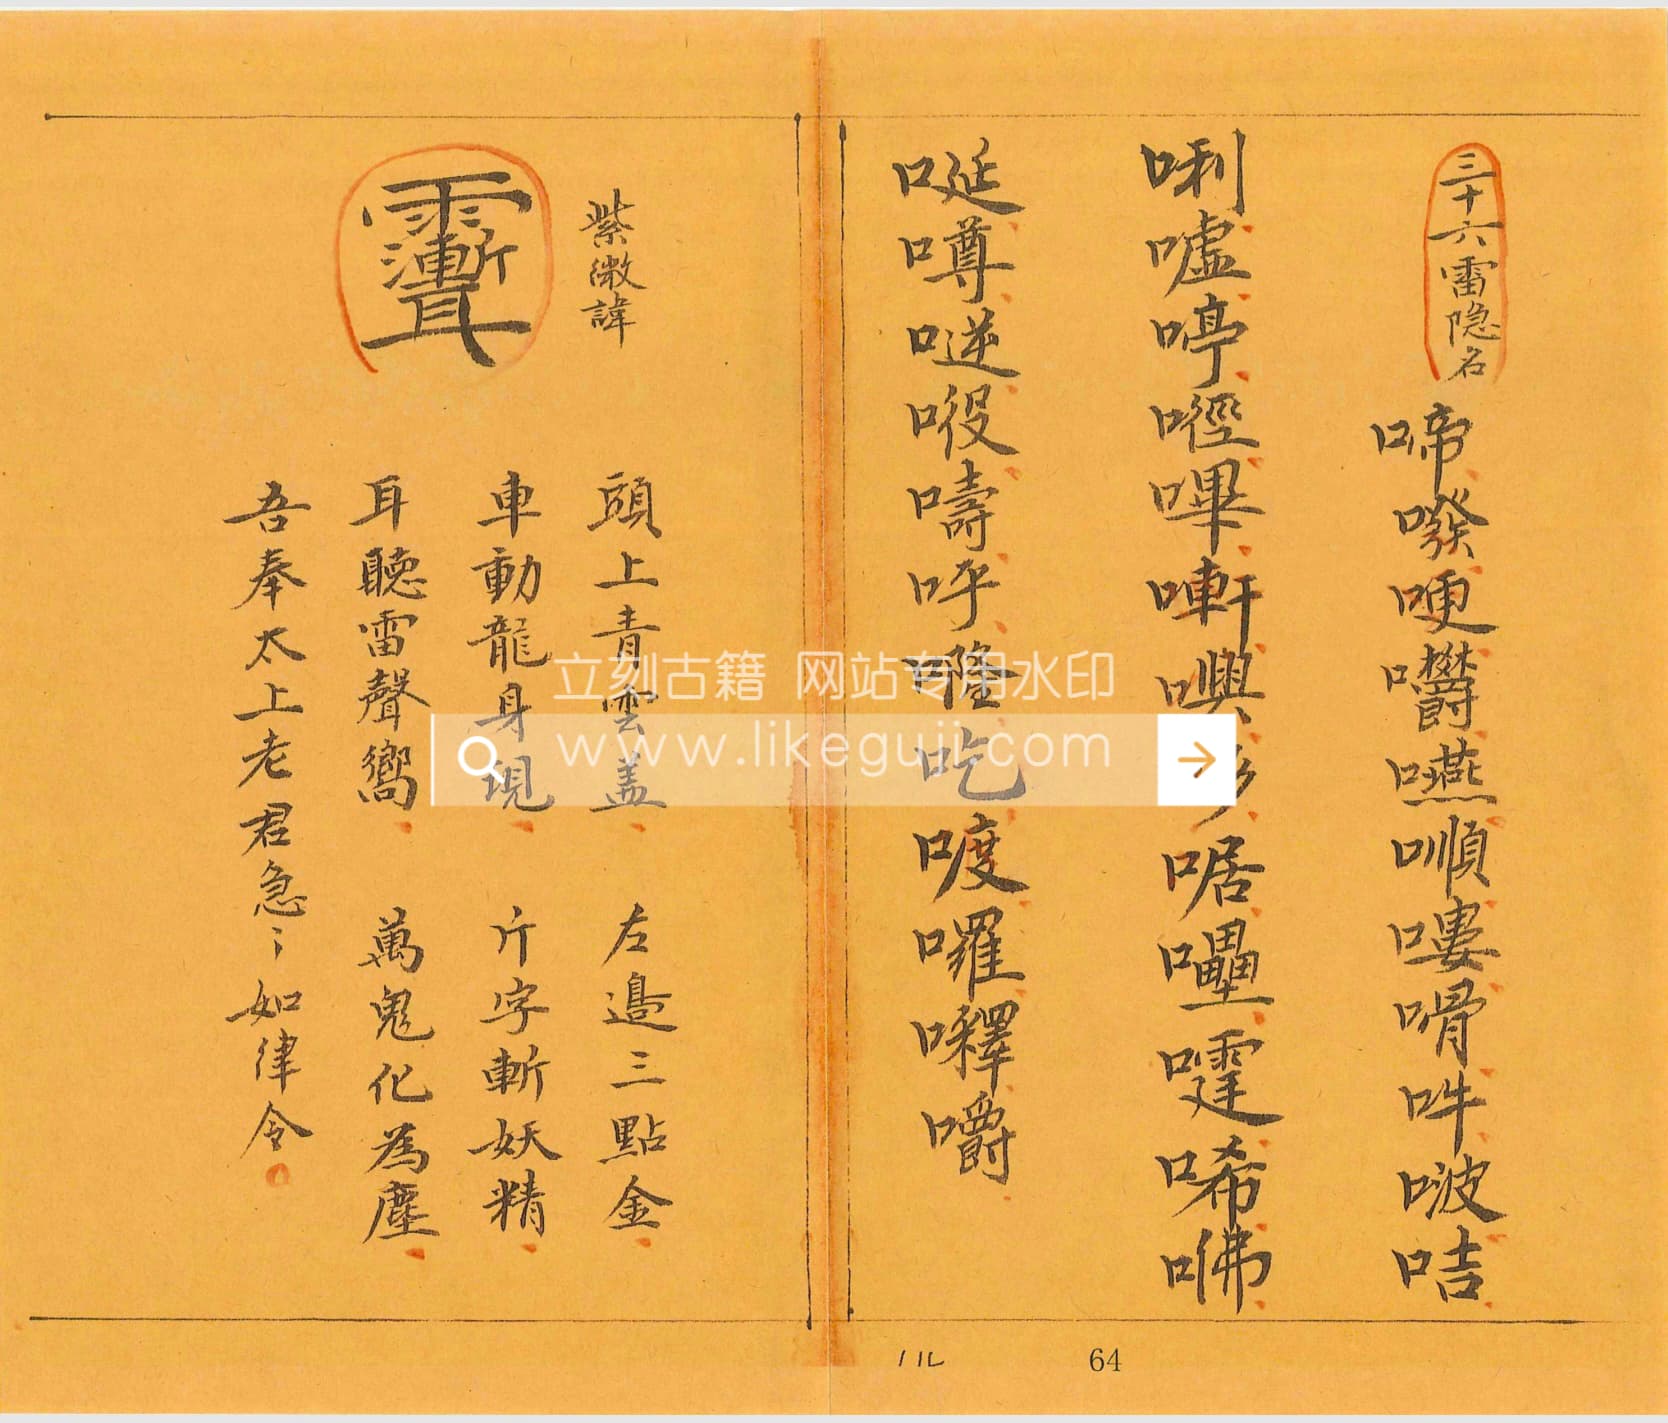 三十六雷隐名
啼𠺆哽𡅽嚥𠿕嘍嗗吽啵咭
唎嘘嘚𠼤嗶𠹛嶼彡啹㘔霆唏咈
唌噂𠴫𠱂嚋呼嚨吃喥囉𡄵嚼
紫微諱
頭上青雲盖 左邉三點金
車動龍身現 斤字斬妖精
耳聽雷聲嚮 萬鬼化為塵
吾奉太上老君急〻如律令
立刻古籍 网站专用水印
www.likeguji.com
64